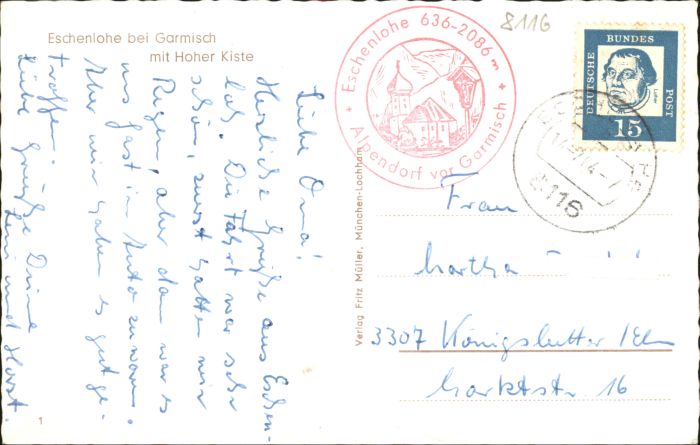 Eschenlohe bei Garmisch
mit Hoher Kiste
8116
* Eschenlohe 636-2086 m *
Alpendorf vor Garmisch
DEUTSCHE BUNDES POST
Luther
15
8116
Liebe Oma!
Herzliche Grüße aus Eschen-
loh. Die Fahrt war sehr
schön, zuerst hatten wir
Regen, aber dann war es
uns fast im Auto zu warm.
Aber wir haben es gut ge-
troffen.
Liebe Grüße Deine
und Horst.
Verlag Fritz Müller, München-Lochham
Frau
Martha
3307 Königslutter / Elm
Marktstr. 16
1